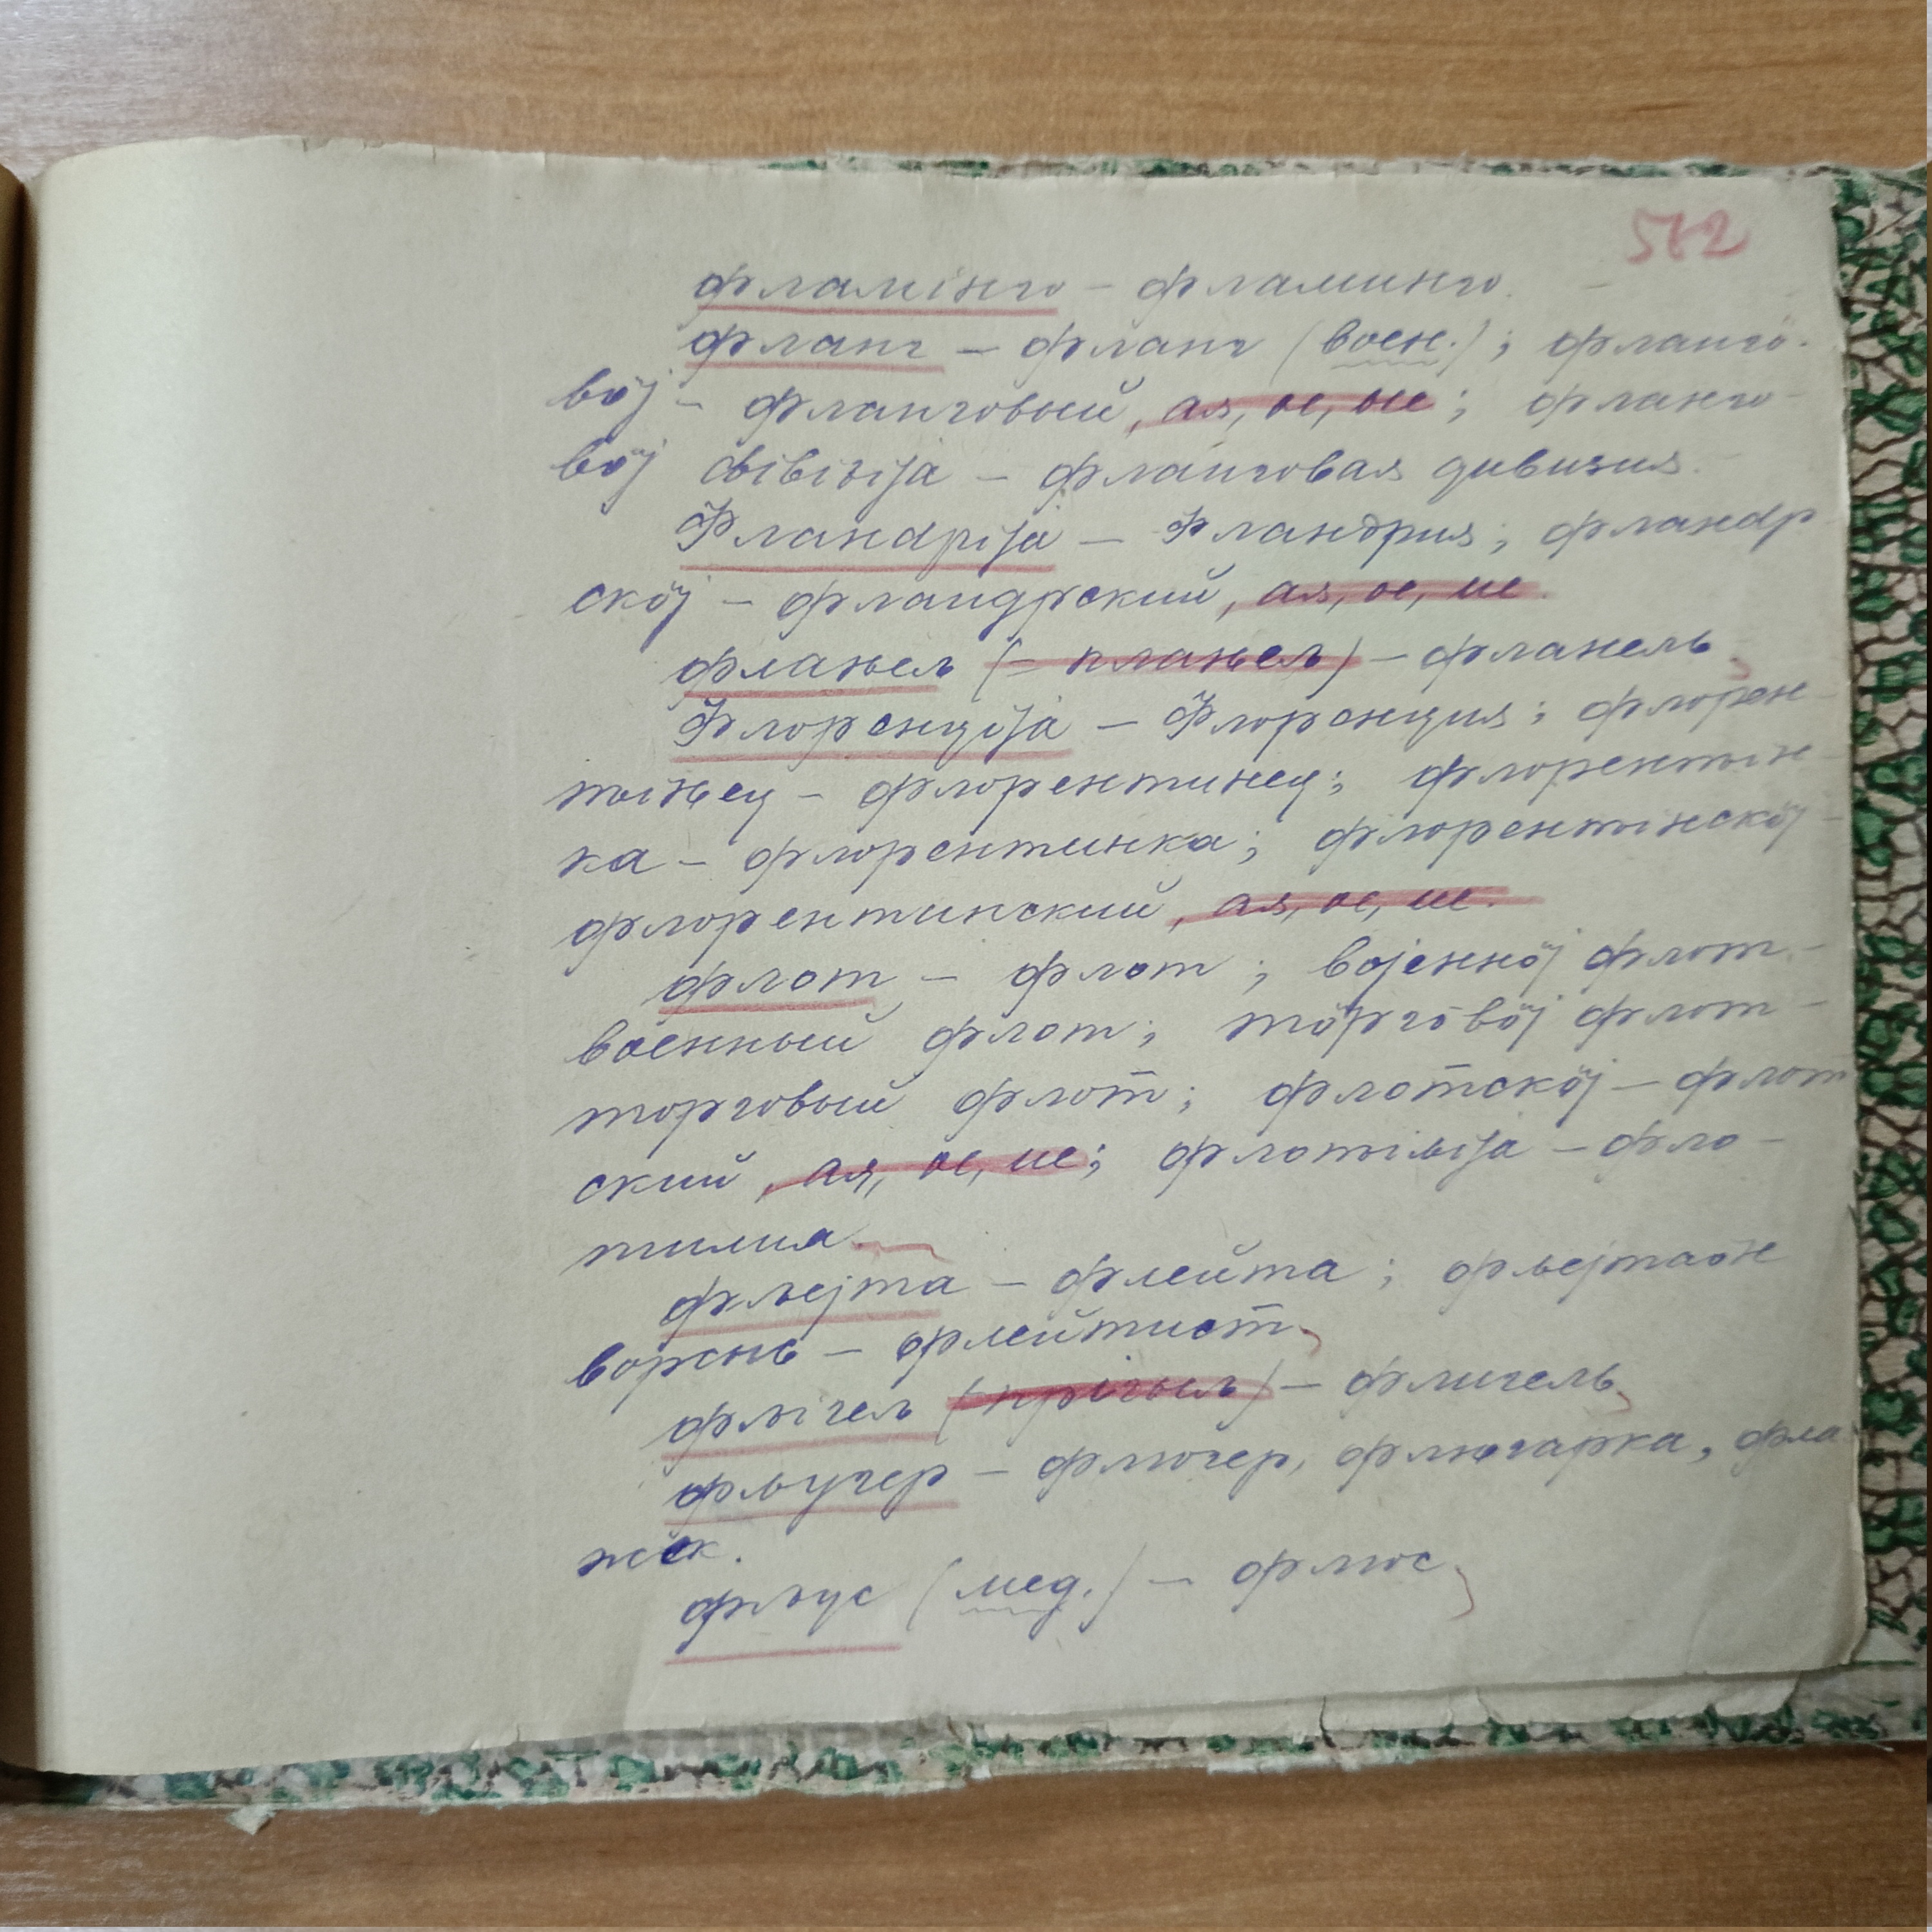 582
фламінго – фламинго.
фланг – фланг (воен.); фланго-
вӧј – фланговый, ая, ое, ые; фланго-
вӧј ԁівізіја – фланговая дивизия.
Фландріја – Фландрия; фландр
скӧј – фландрский, ая, ое, ие.
фланьељ (– планьељ) – фланель
Флоренціја – Флоренция; флорен-
тіњец – флорентинец; флорентін-
ка – флорентинка; флорентінскӧј –
флорентинский, ая, ое, ие.
флот – флот; војеннӧј флот –
военный флот; тӧрговӧј флот –
торговый флот; флотскӧј – флот
ский, ая, ое, ие; флотіљіја – фло-
тилия.
фљејта – флейта; фљејтаӧн
ворсыь – флейтист,
фљігељ (прігыљ) – флигель
фљугер – флюгер, флюгарка, фла
жок.
фљус (мед.) – флюс,